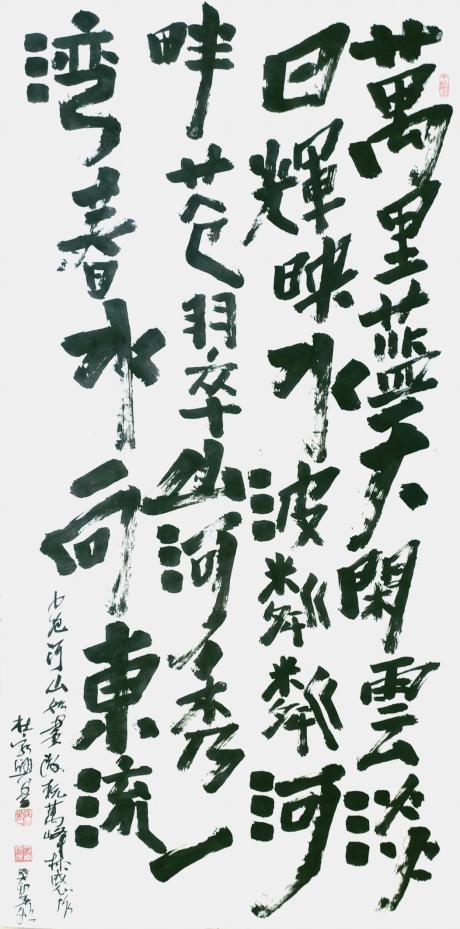 萬里藍天閑雲淡
日輝映水波粼粼河
畔苍翠山河秀一
湾春水向東流
河山如畫 萬峰林感